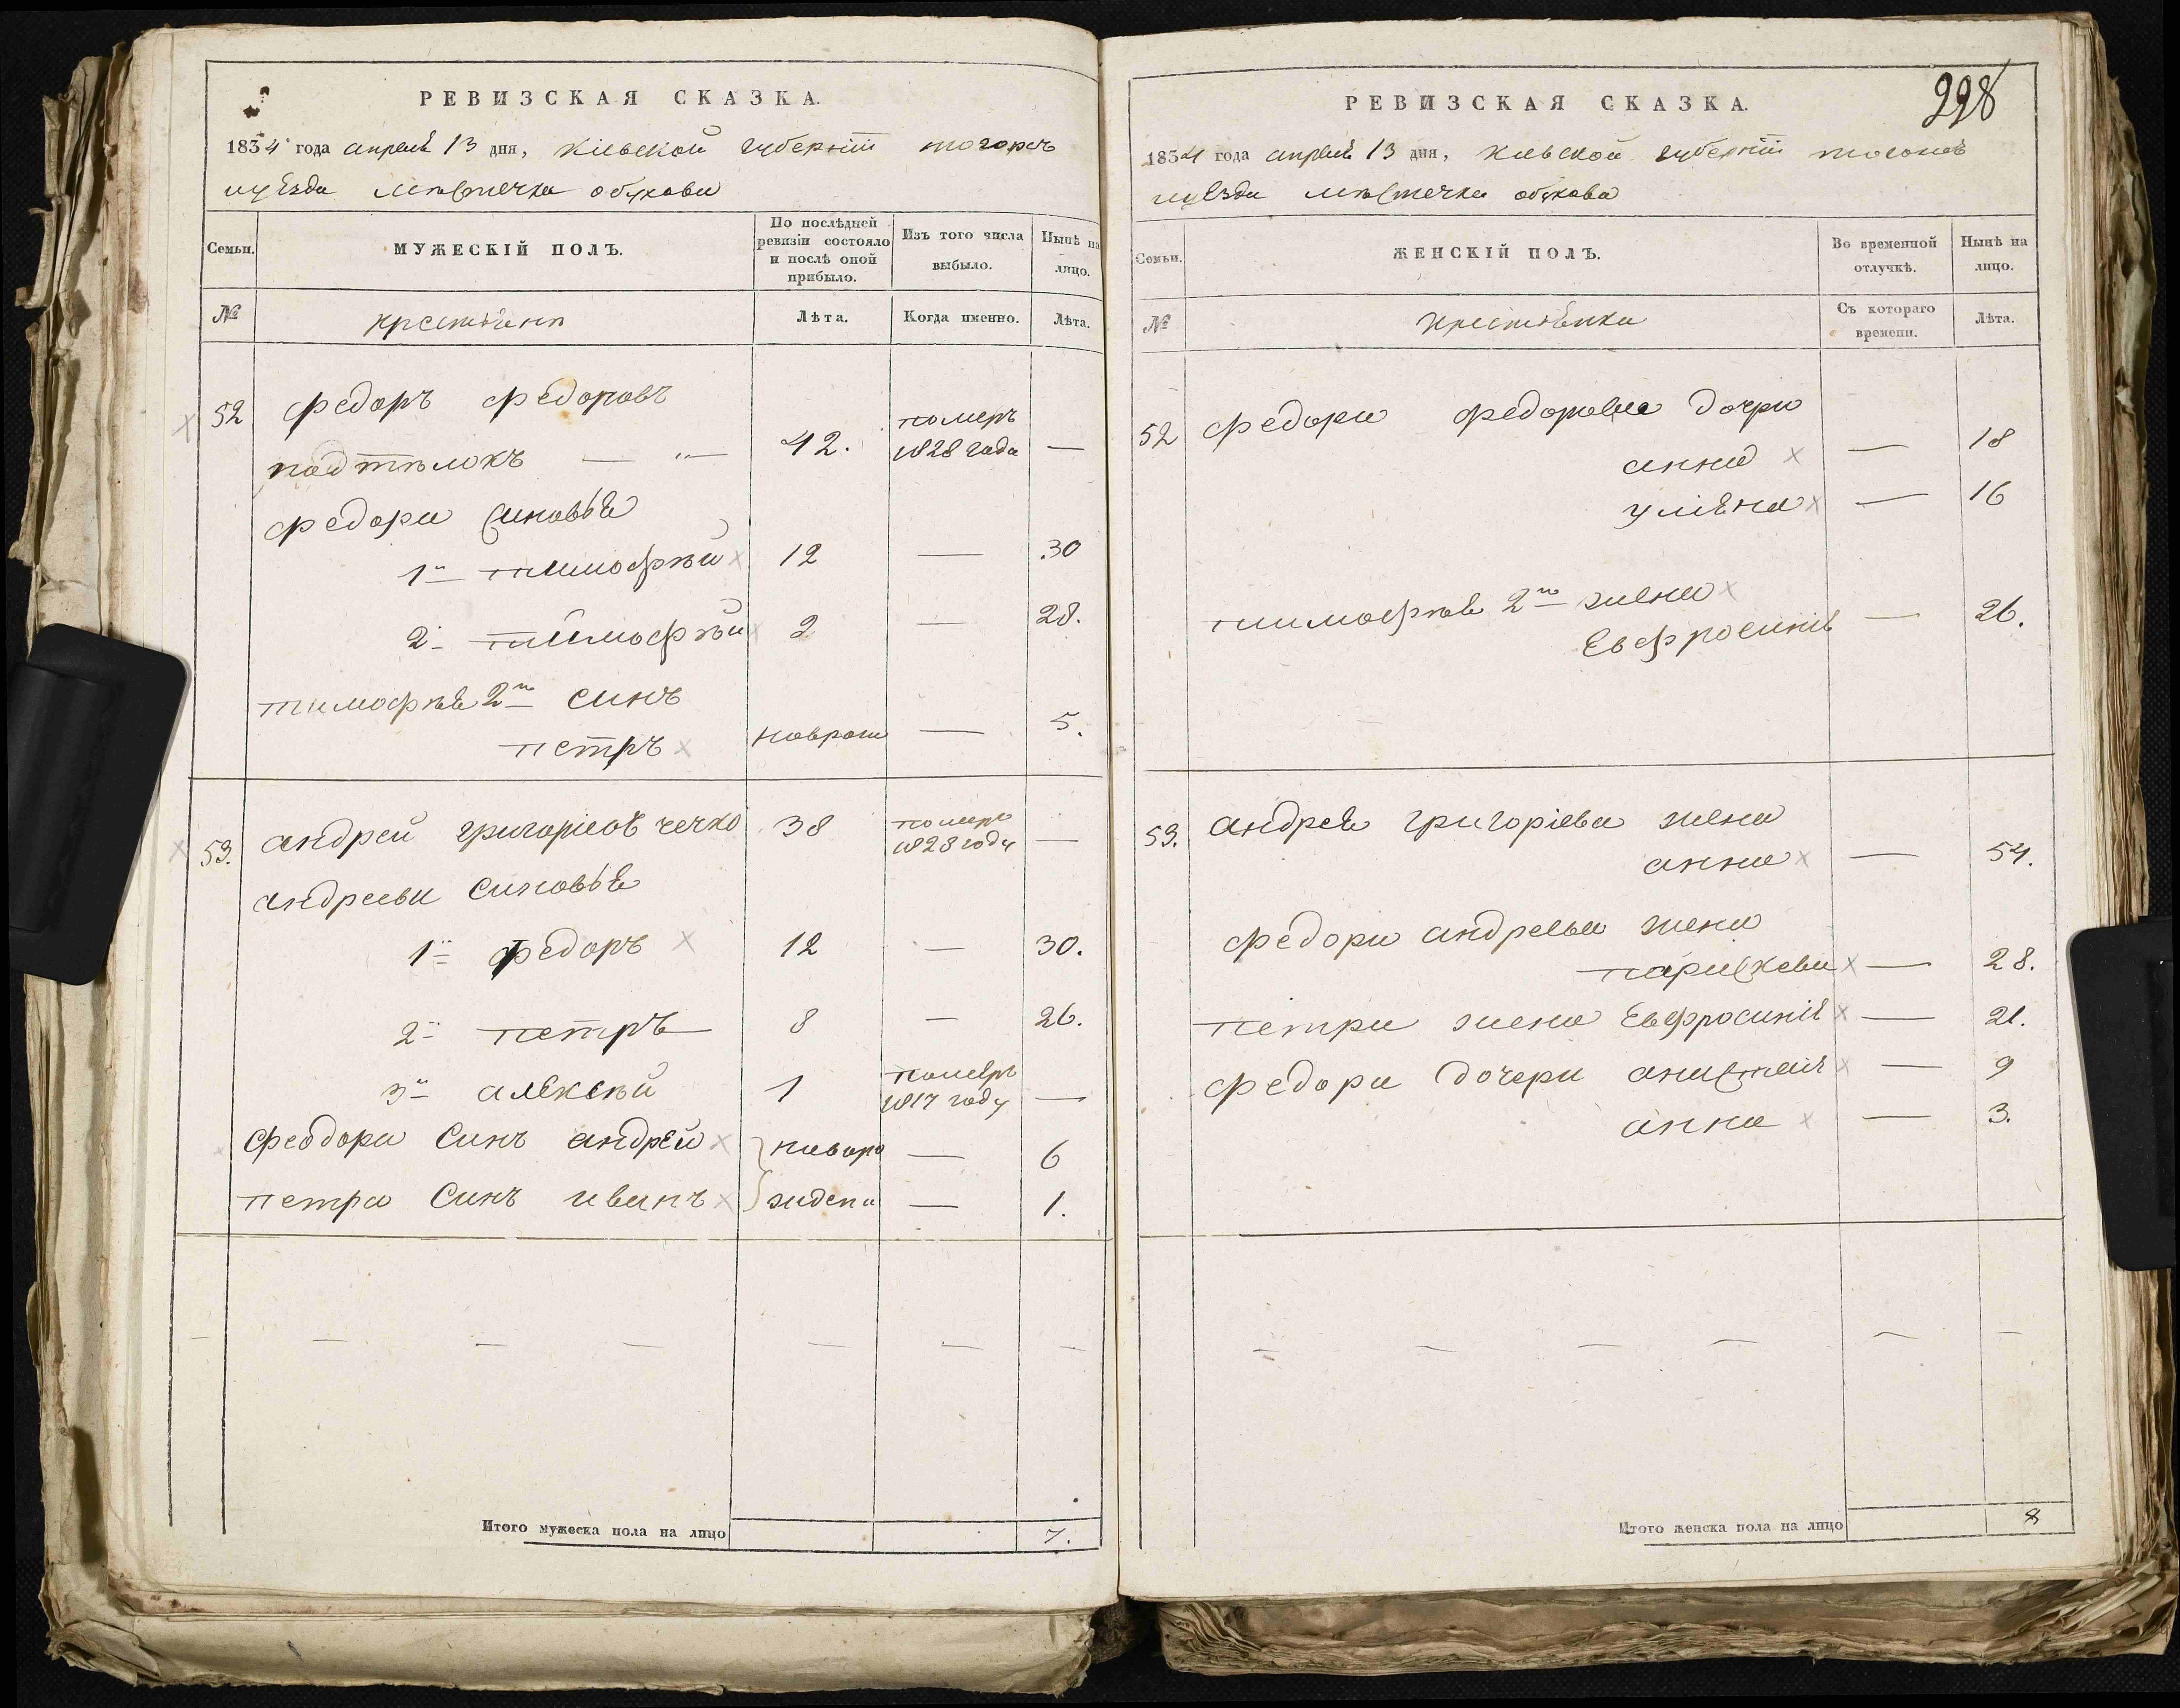 РЕВИЗСКАЯ СКАЗКА.
1834 года апреля 13 дня, Кіевской губерніи тогожъ
уѣзда мѣстечка обухова
Семьи.
МУЖЕСКІЙ ПОЛЪ.
По послѣдней ревизіи состояло и послѣ оной прибыло.
Изъ того числа выбыло.
Нынѣ на лицо.
№
крестьяни
Лѣта.
Когда именно.
Лѣта.
52 федоръ федоровъ
подтѣлокъ — " — 42. померъ 1828 года —
федора сыновья
1й тимофѣй 12 — 30
2й тимофѣй 2 — 28.
тимофѣя 2го синъ
петръ новрож — 5.
53. андрей григориевъ чечко 38 померъ 1828 году —
андреевы синовья
1й федоръ 12 — 30.
2й петръ 8 — 26.
3й алексѣй 1 померъ 1817 году —
феодора синъ андрей новоро — 6
петра синъ иванъ жденн — 1.
Итого мужеска пола на лицо 7.
228
РЕВИЗСКАЯ СКАЗКА.
1834 года апреля 13 дня, Кіевской губерніи тогожъ
уезда мѣстечка обухова
Семьи.
ЖЕНСКІЙ ПОЛЪ.
Во временной отлучкѣ.
Нынѣ на лицо.
№
крестьянки
Съ котораго времени.
Лѣта.
52 федора федорова дочри
анна — 18
улияна — 16
тимофѣя 2го жена
Евфросиния — 26.
53. андрея григоріева жена
анна — 54.
федора андреева жена
параскева — 28.
петра жена Евфросиния — 21.
федора дочери анастасия — 9
анна — 3.
Итого женска пола на лицо 8